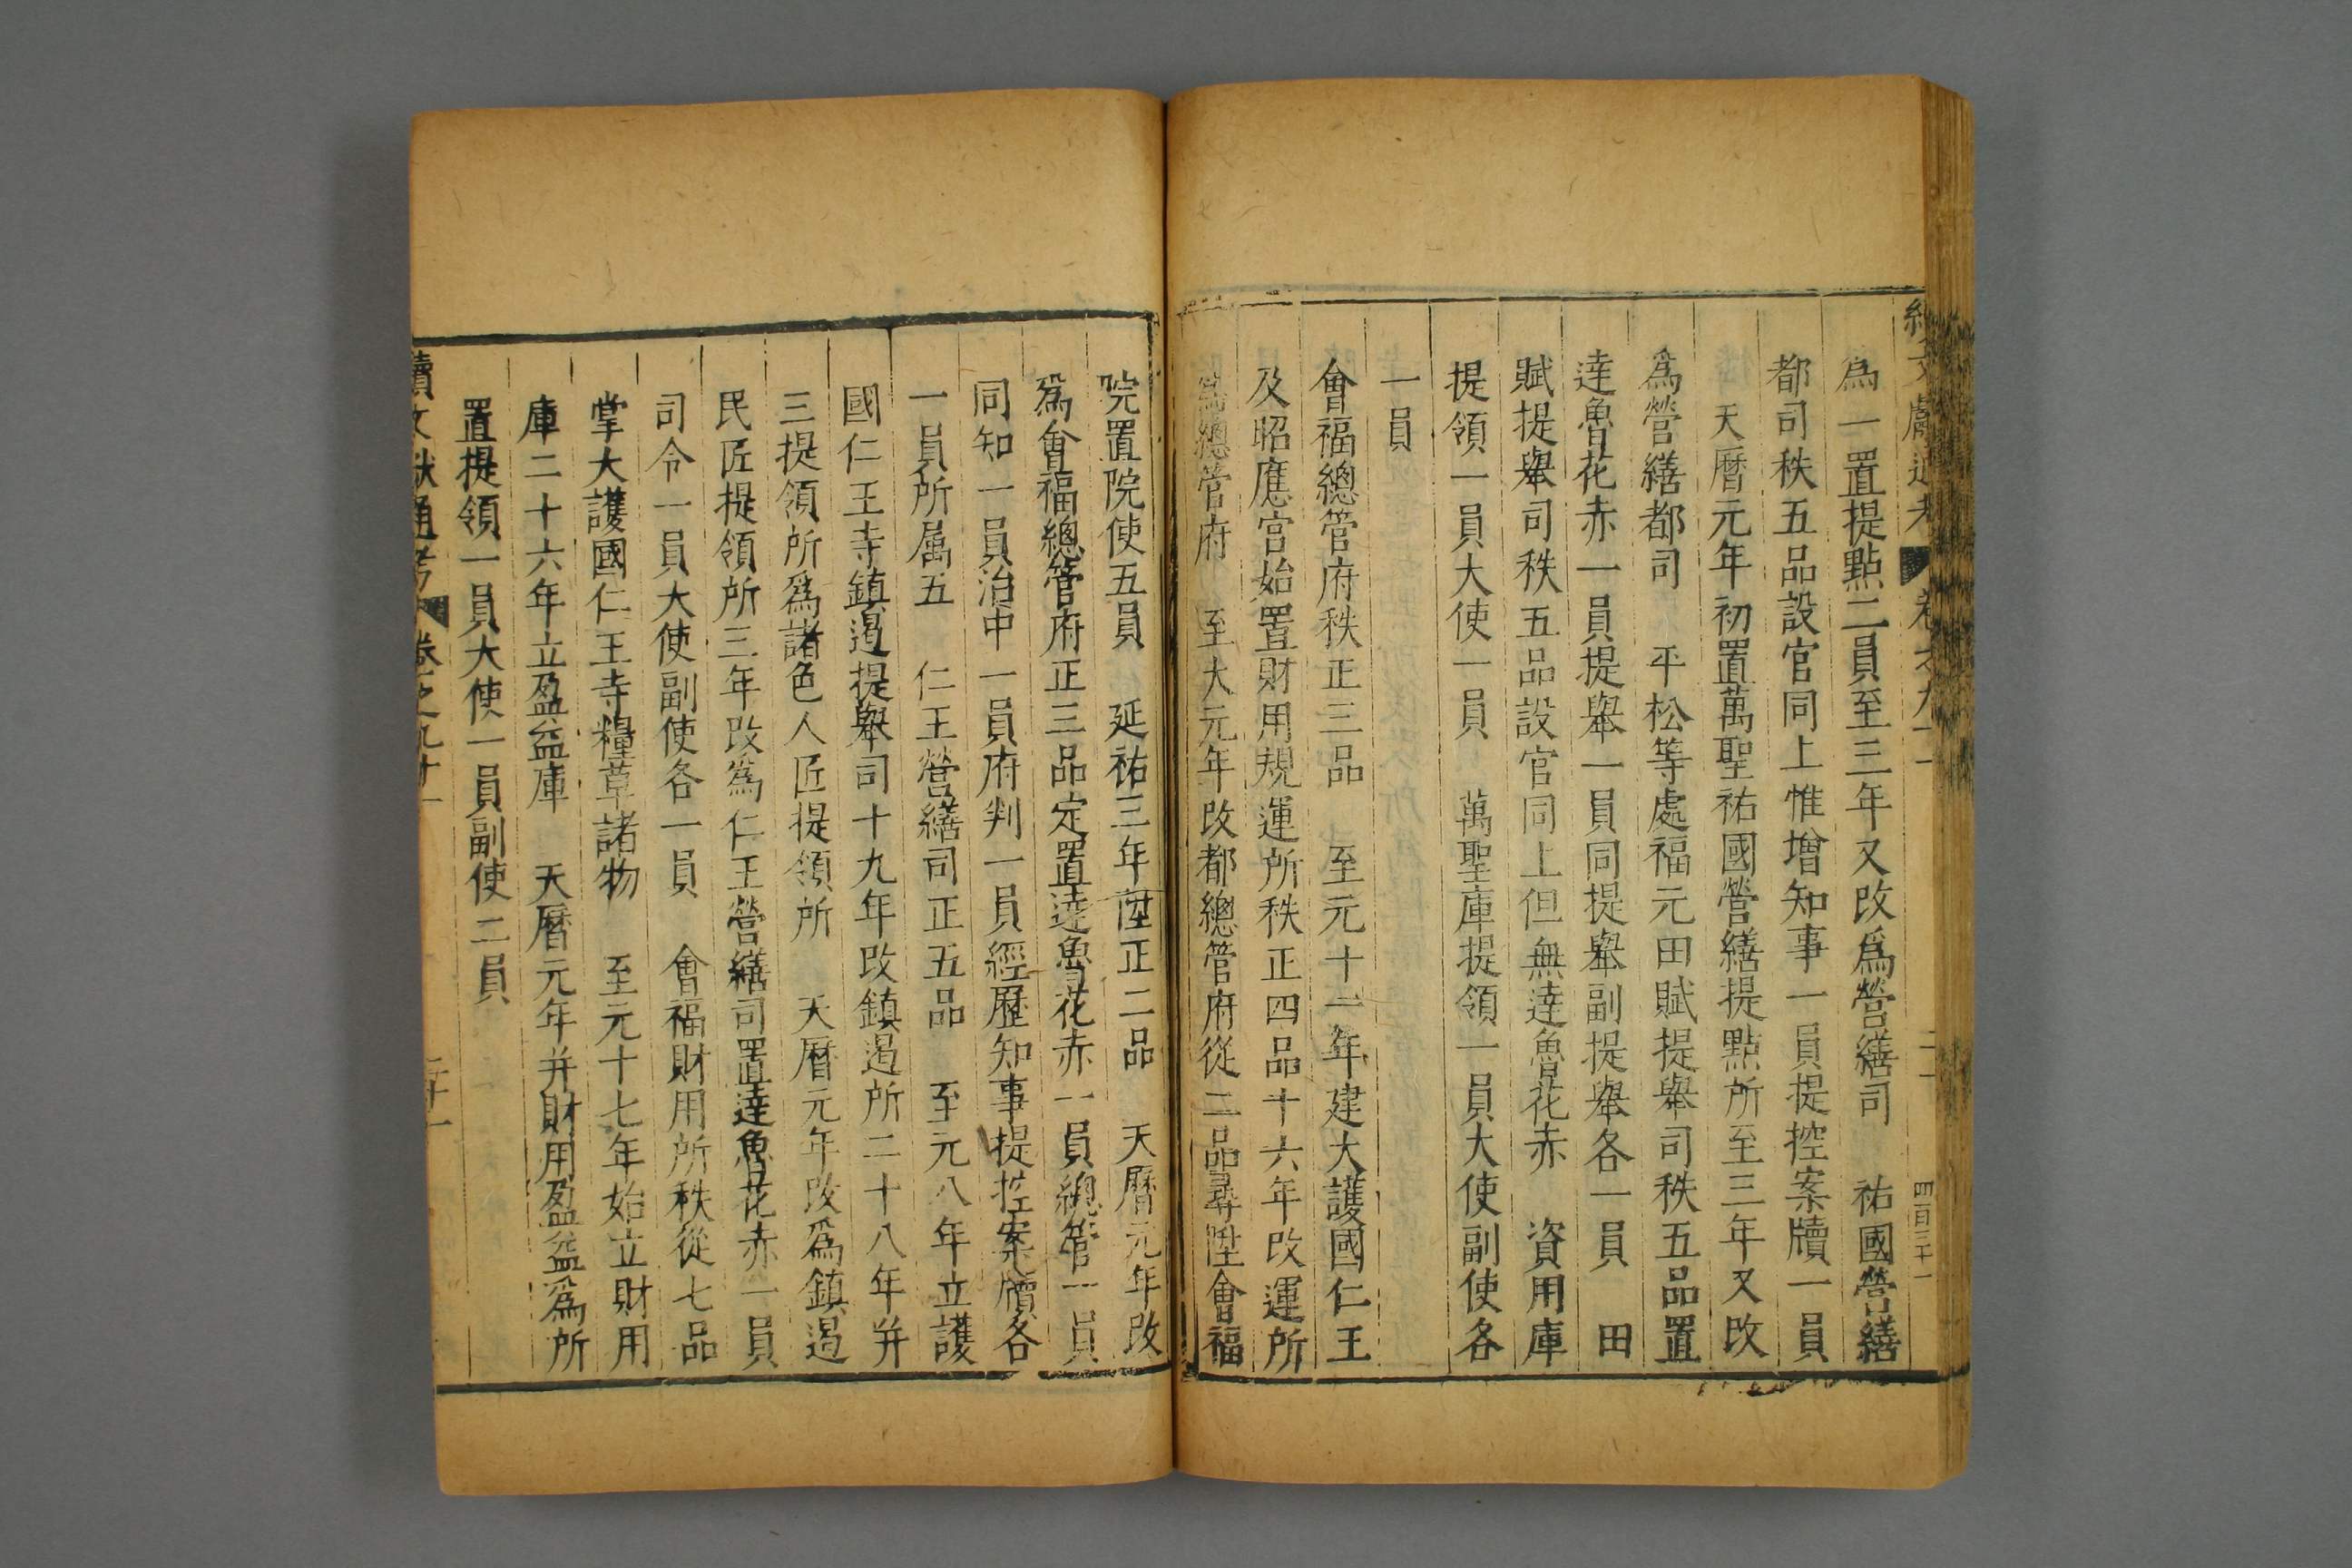 為一置提點二員至三年又改爲營繕司　祐國營繕
都司秩五品設官同上惟增知事一員提控案牘一員
天曆元年初置萬聖祐國營繕提點所至三年又改
爲營繕都司　平松等處福元田賦提舉司秩五品置
達魯花赤一員提舉一員同提舉副提舉各一員　田
賦提舉司秩五品設官同上但無達魯花赤　資用庫
提領一員大使一員　萬聖庫提領一員大使副使各
一員
會福總管府秩正三品　至元十一年建大護國仁王
及昭應宮始置財用規運所秩正四品十六年改運所
爲總管府　至大元年改都總管府從二品尋陞會福
院置院使五員　延祐三年陞正二品　天曆元年改
爲會福總管府正三品定置達魯花赤一員總管一員
同知一員治中一員府判一員經歷知事提控案牘各
一員所属五　仁王營繕司正五品　至元八年立護
國仁王寺鎮遏提舉司十九年改鎮遏所二十八年并
三提領所爲諸色人匠提領所　天曆元年改爲鎮遏
民匠提領所三年改爲仁王營繕司置達魯花赤一員
司令一員大使副使各一員　會福財用所秩從七品
掌大護國仁王寺糧草諸物　至元十七年始立財用
庫二十六年立盈益庫　天曆元年并財用盈益爲所
置提領一員大使一員副使二員
續文獻通考　卷之九十一